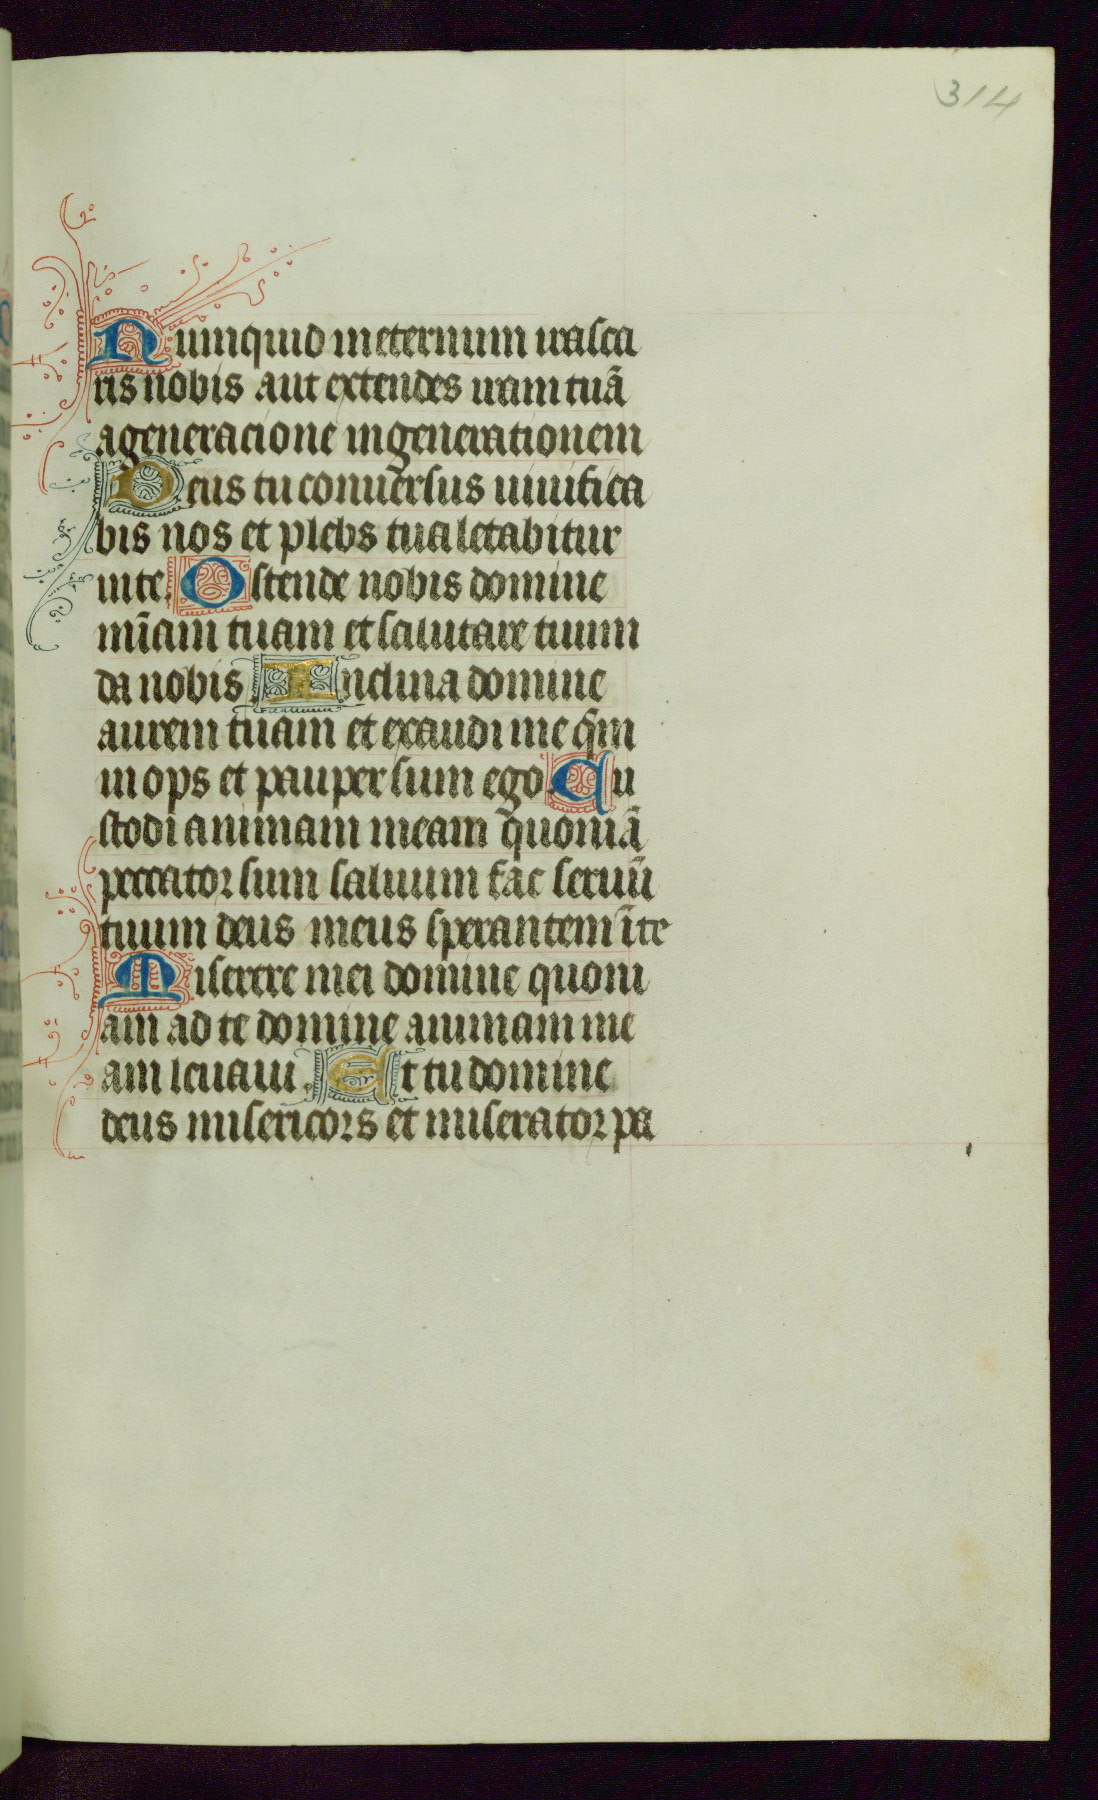 314
Numquid in eternum irasca
ris nobis aut extendes iram tuā
a generacione in generationem
Deus tu conuersus uiuifica
bis nos et plebs tua letabitur
in te. Ostende nobis domine
mīam tuam et salutare tuum
da nobis Inclina domine
aurem tuam et exaudi me qm̄
inops et pauper sum ego. Cu
stodi animam meam quoniā
peccator sum saluum fac seruū
tuum deus meus sperantem ī te
Miserere mei domine quoni
am ad te domine animam me
am leuaui. Et tu domine
deus misericors et miserator pa